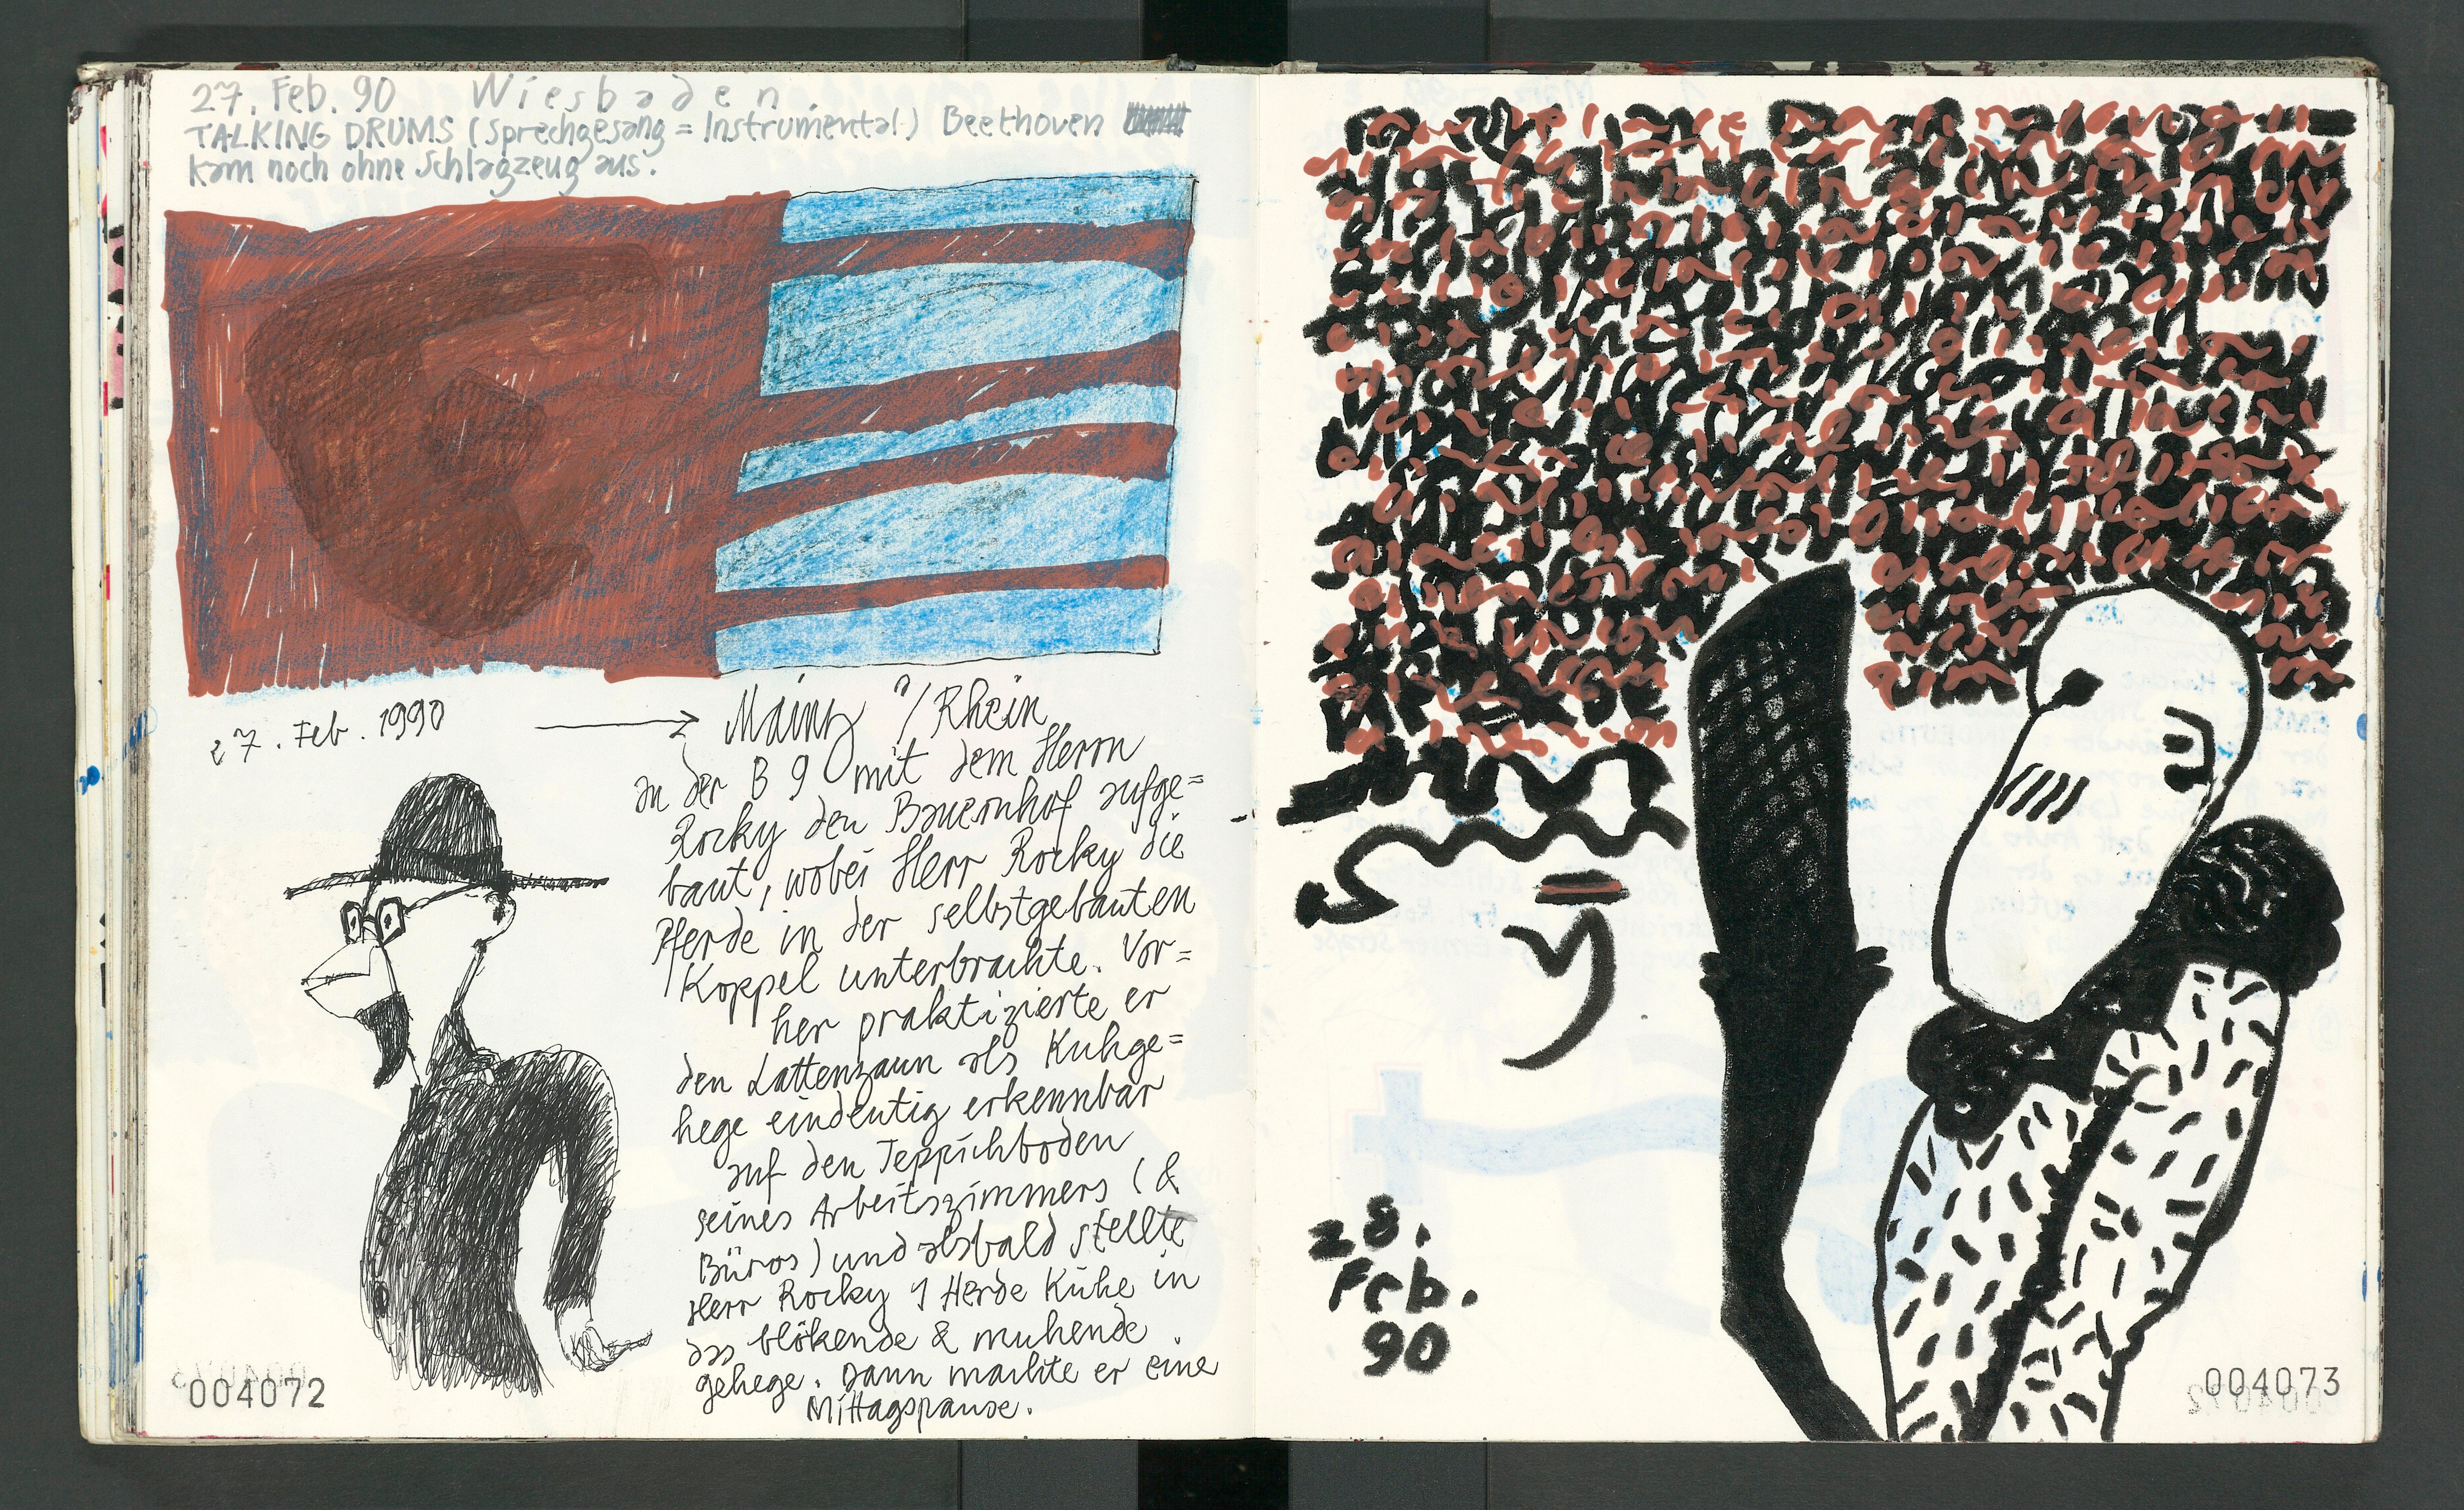 27. Feb. 90 Wiesbaden
TALKING DRUMS (Sprechgesang = Instrumental) Beethoven
kam noch ohne Schlagzeug aus.
27. Feb. 1990 → Mainz a/Rhein
In der B 9 mit dem Herrn
Rocky den Bauernhof aufge=
baut, wobei Herr Rocky die
Pferde in der selbstgebauten
Koppel unterbrachte. Vor=
her praktizierte er
den Lattenzaun als Kuhge=
hege eindeutig erkennbar
auf den Teppichboden
seines Arbeitszimmers (&
Büros) und alsbald stellte
Herr Rocky 1 Herde Kühe in
das blökende & muhende
gehege. Dann machte er eine
Mittagspause.
004072
28.
Feb.
90
004073